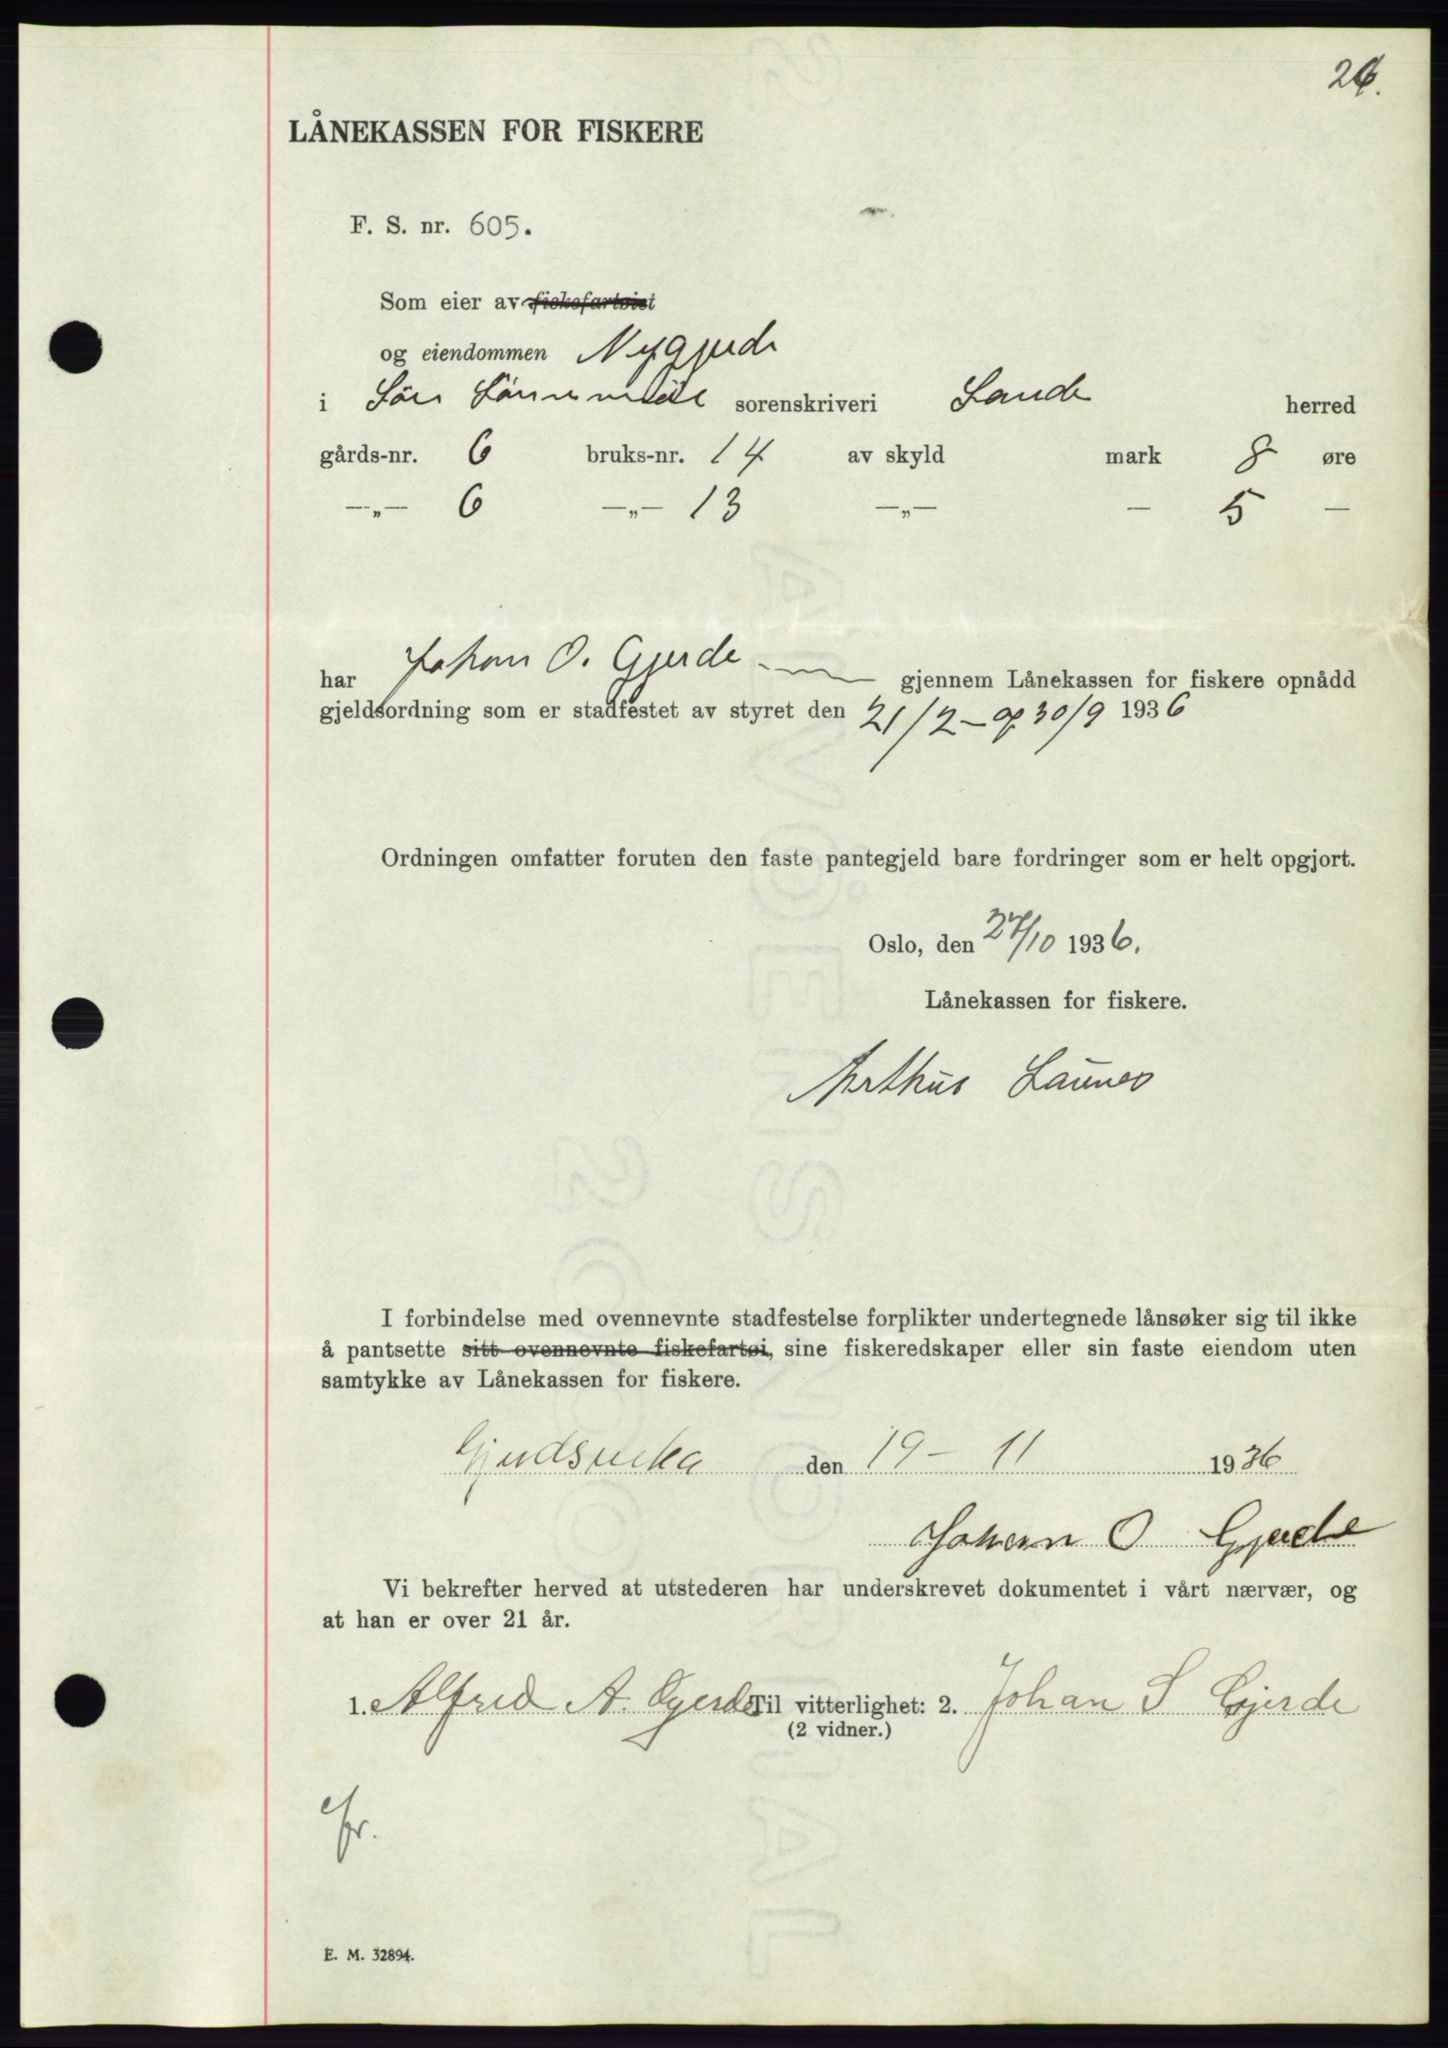 26.
LÅNEKASSEN FOR FISKERE
F. S. nr. 605.
Som eier av fiskefartøiet
og eiendommen Nygjerde
i Søre Sunnmøre sorenskriveri Sande herred
gårds-nr. 6 bruks-nr. 14 av skyld mark 8 øre
—„— 6 —„— 13 —„— — 5 —
har Johan O. Gjerde gjennem Lånekassen for fiskere opnådd
gjeldsordning som er stadfestet av styret den 21/2 – og 30/9 1936
Ordningen omfatter foruten den faste pantegjeld bare fordringer som er helt opgjort.
Oslo, den 27/10 1936.
Lånekassen for fiskere.
Arthur
I forbindelse med ovennevnte stadfestelse forplikter undertegnede lånsøker sig til ikke
å pantsette sitt ovennevnte fiskefartøi, sine fiskeredskaper eller sin faste eiendom uten
samtykke av Lånekassen for fiskere.
Gjerdsvika den 19 – 11 1936
Johan O Gjerde
Vi bekrefter herved at utstederen har underskrevet dokumentet i vårt nærvær, og
at han er over 21 år.
1. Alfred A. Gjerde Til vitterlighet: 2. Johan S Gjerde
(2 vidner.)
E. M. 32894.
ALVØENS NORMAL